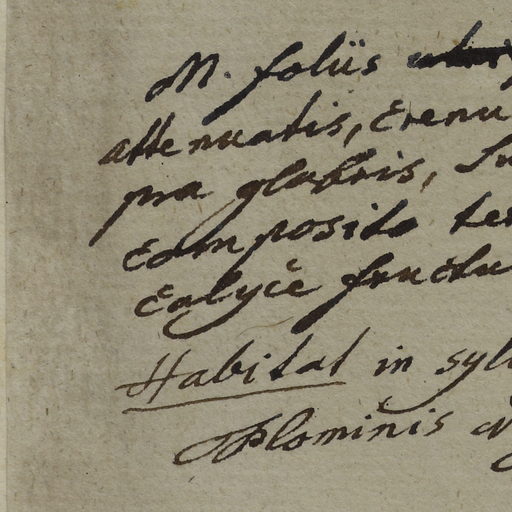 M. foliis
attenuatis, crenu
pra glabris, Su
composito ter
calyce fructu
Habitat in sylv